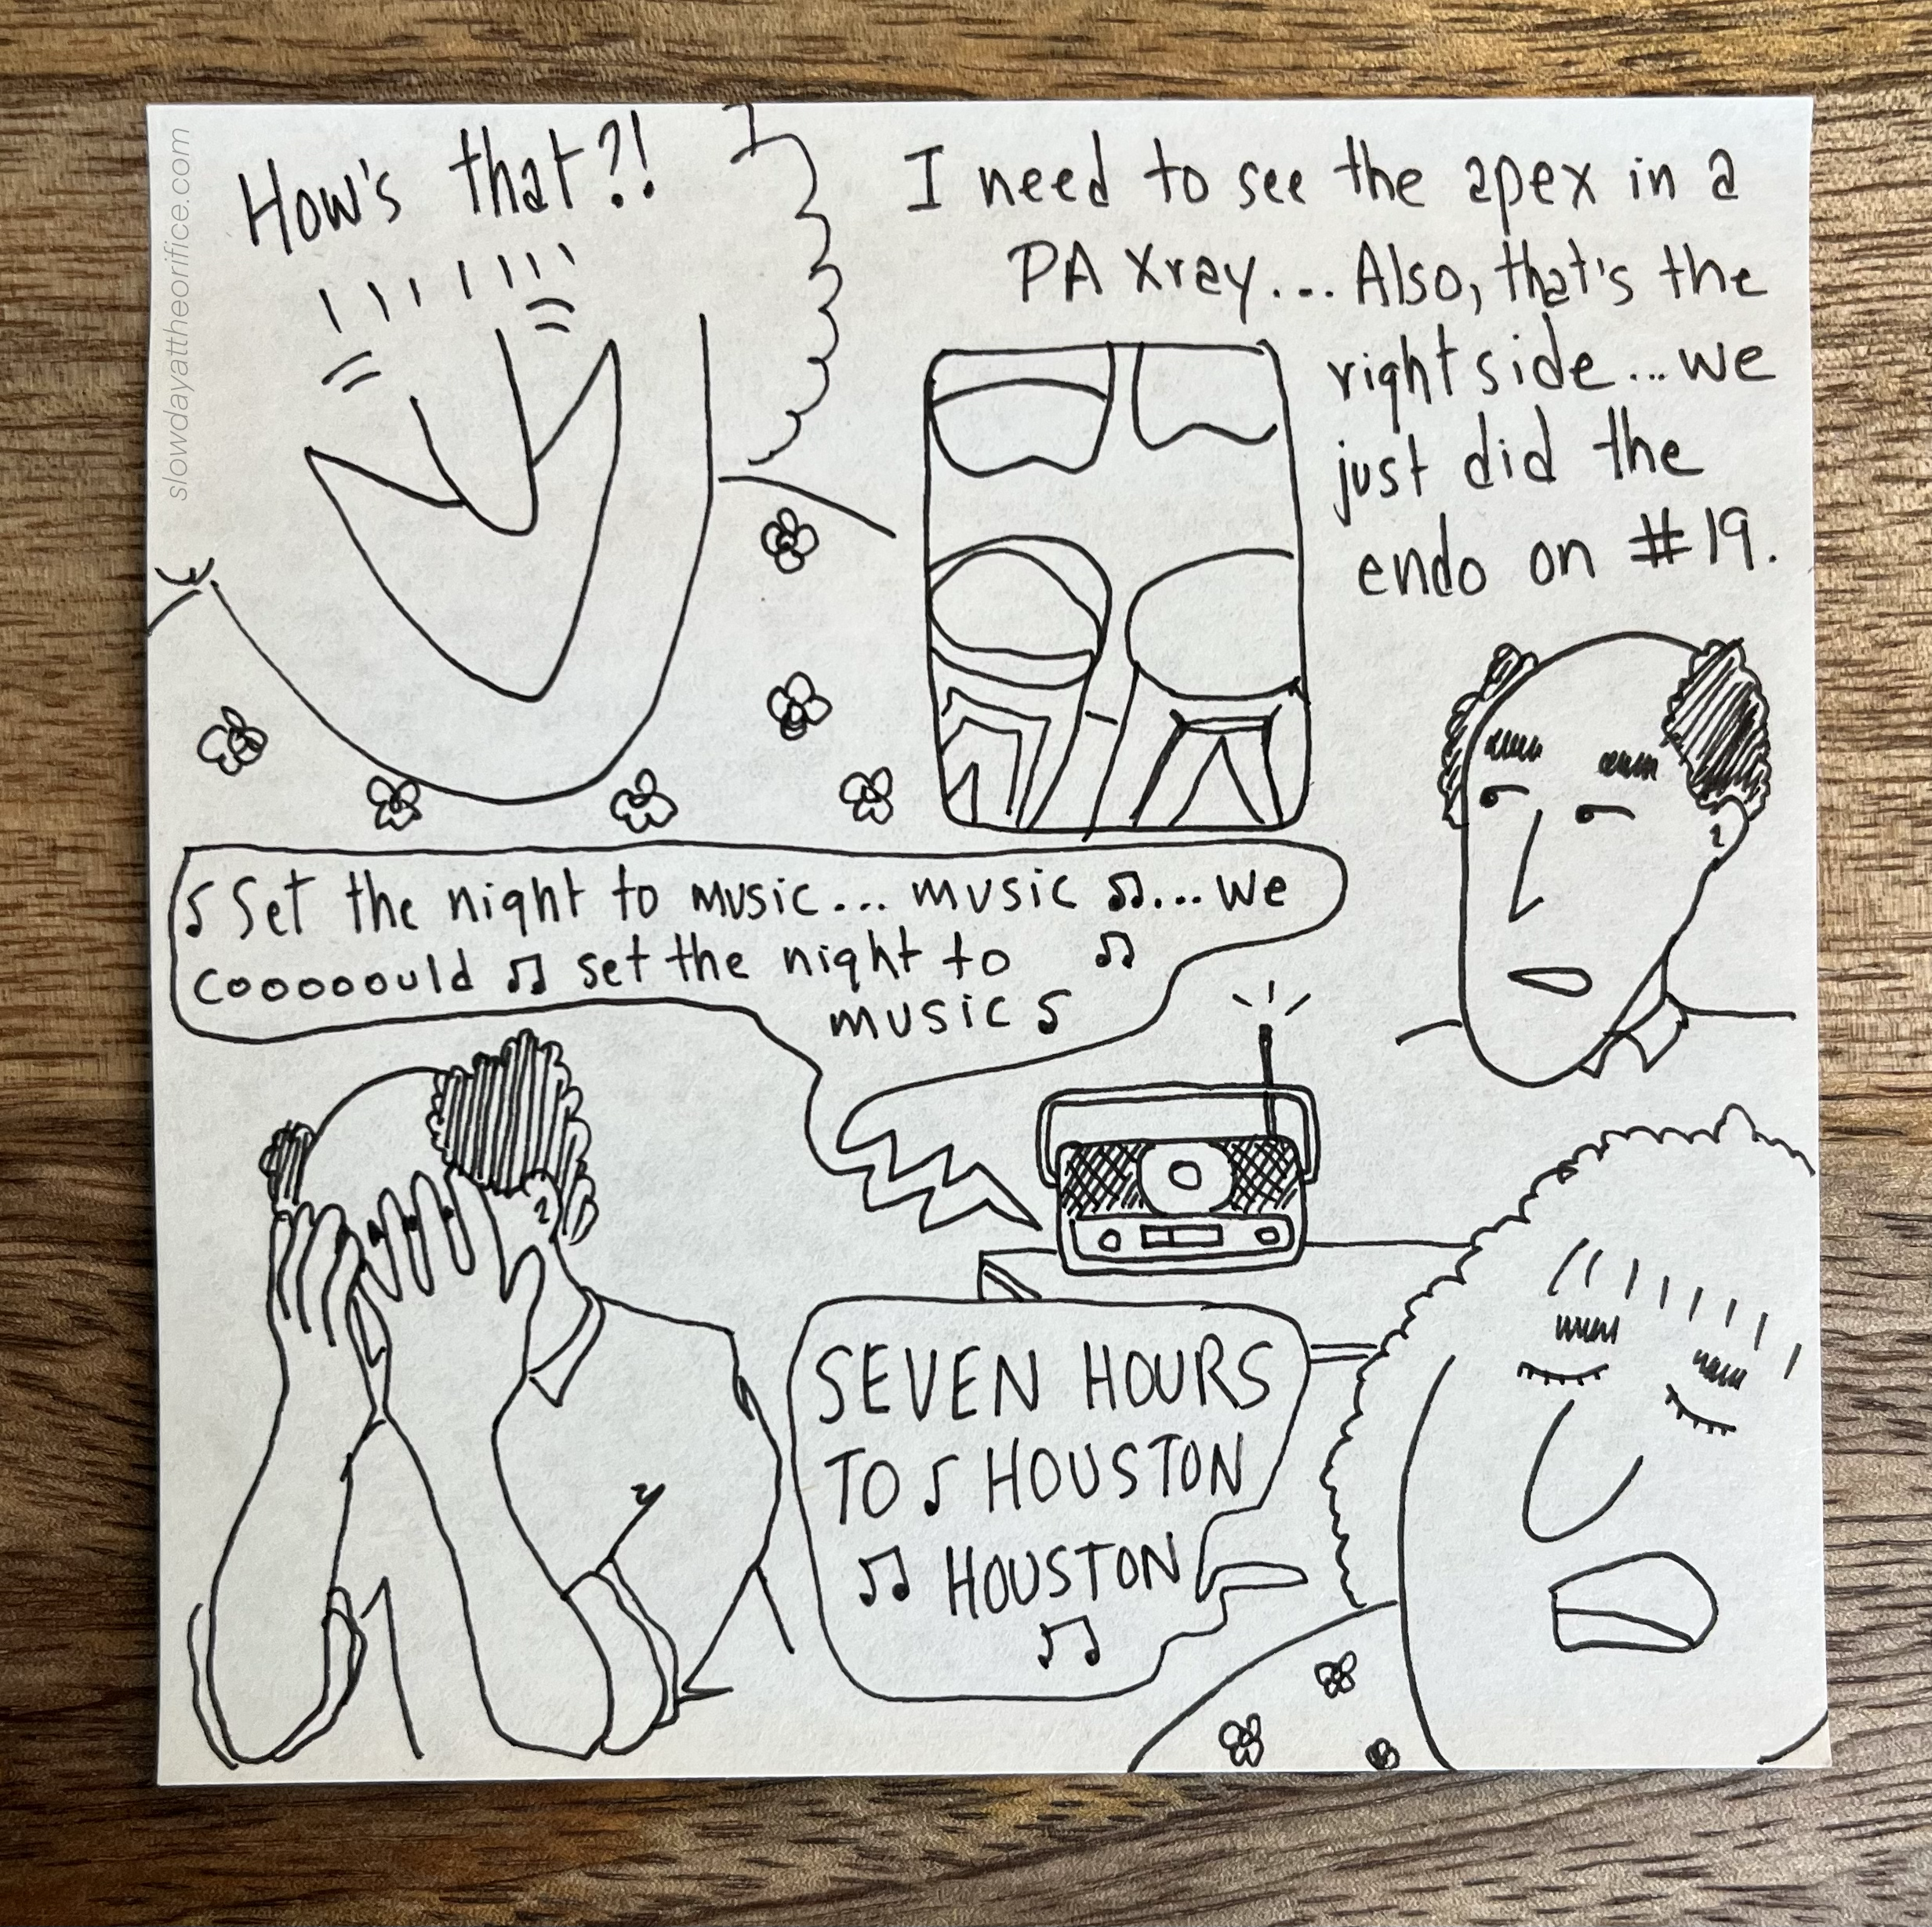 slowdayattheorifice.com
How's that?!
I need to see the apex in a
PA Xray... Also, that's the
right side... we
just did the
endo on #19.
♪ Set the night to music... music ♫... we
cooooould ♫ set the night to ♫
music ♪
SEVEN HOURS
TO ♪ HOUSTON
♫ HOUSTON
♫